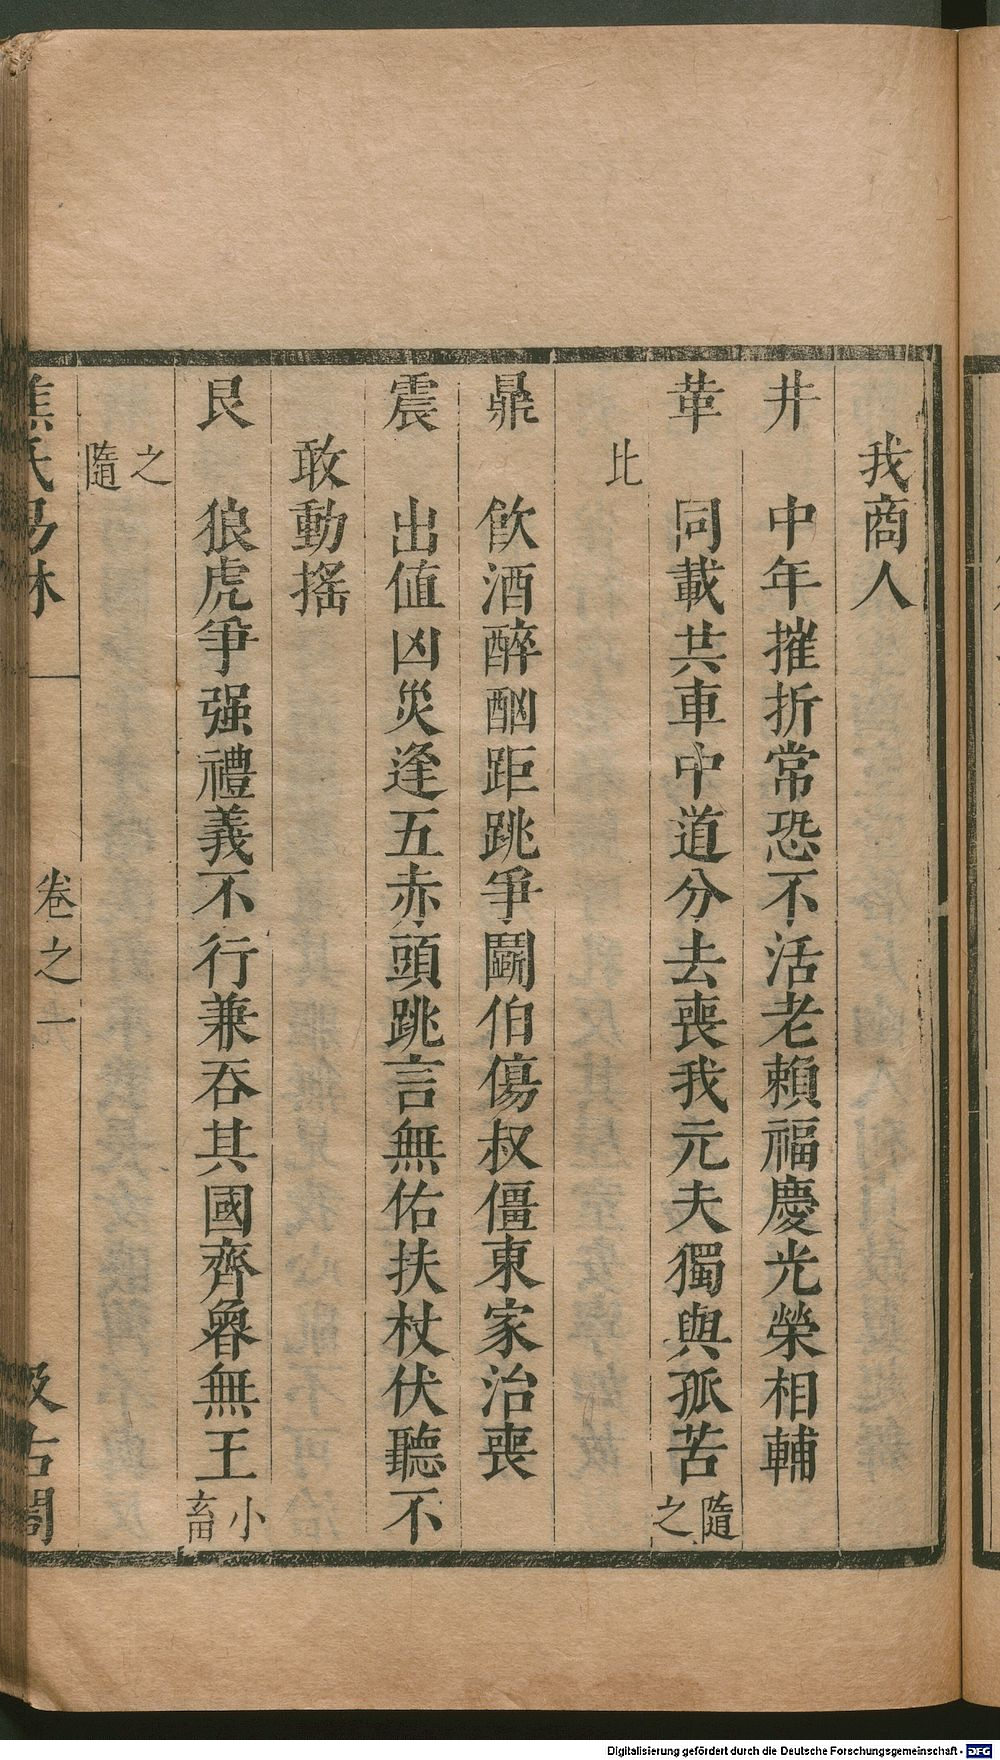 我商人
井 中年摧折常恐不活老賴福慶光榮相輔
革 同載共車中道分去喪我元夫獨與孤苦 隨之
比
鼎 飲酒醉酗距跳爭鬭伯傷叔僵東家治喪
震 出値凶災逢五赤頭跳言無佑扶杖伏聽不
敢動搖
艮 狼虎爭强禮義不行兼吞其國齊魯無王 小畜
之隨
焦氏易林 卷之九 一 汲古閣
Digitalisierung gefördert durch die Deutsche Forschungsgemeinschaft - DFG